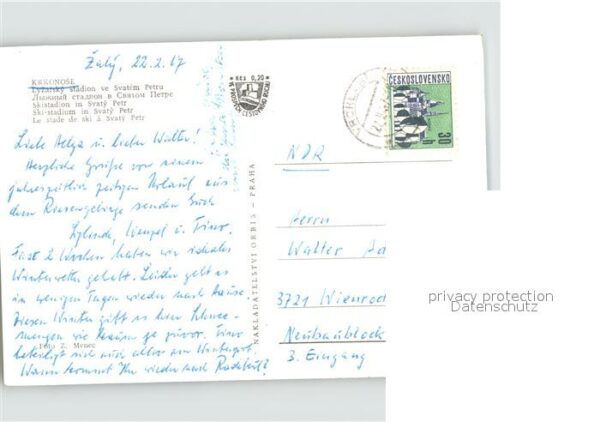 Žalý, 22.2.67
KRKONOŠE
Lyžařský stadion ve Svatém Petru
Лыжный стадион в Святом Петре
Skistadion in Svatý Petr
Ski-stadium in Svatý Petr
Le stade de ski à Svatý Petr
Kčs 0,20
ČESKOSLOVENSKO
30 h
Liebe Helga u. lieber Walter!
Herzliche Grüße von einem
jahreszeitlich zeitigen Urlaub aus
dem Riesengebirge senden Euch
Fast 2 Wochen haben wir ideales
Winterwetter gehabt. Leider geht es
in wenigen Tagen wieder nach Hause.
Diesen Winter gibt es hier Schnee-
mengen wie kaum je zuvor.
beteiligt sich aus allem am Wintersport.
Wann kommt Ihr wieder nach Radebeul?
Foto Z. Mynec
NAKLADATELSTVÍ ORBIS – PRAHA
Herrn
Walter
3721 Wienrod
Neubaublock
3. Eingang
privacy protection
Datenschutz